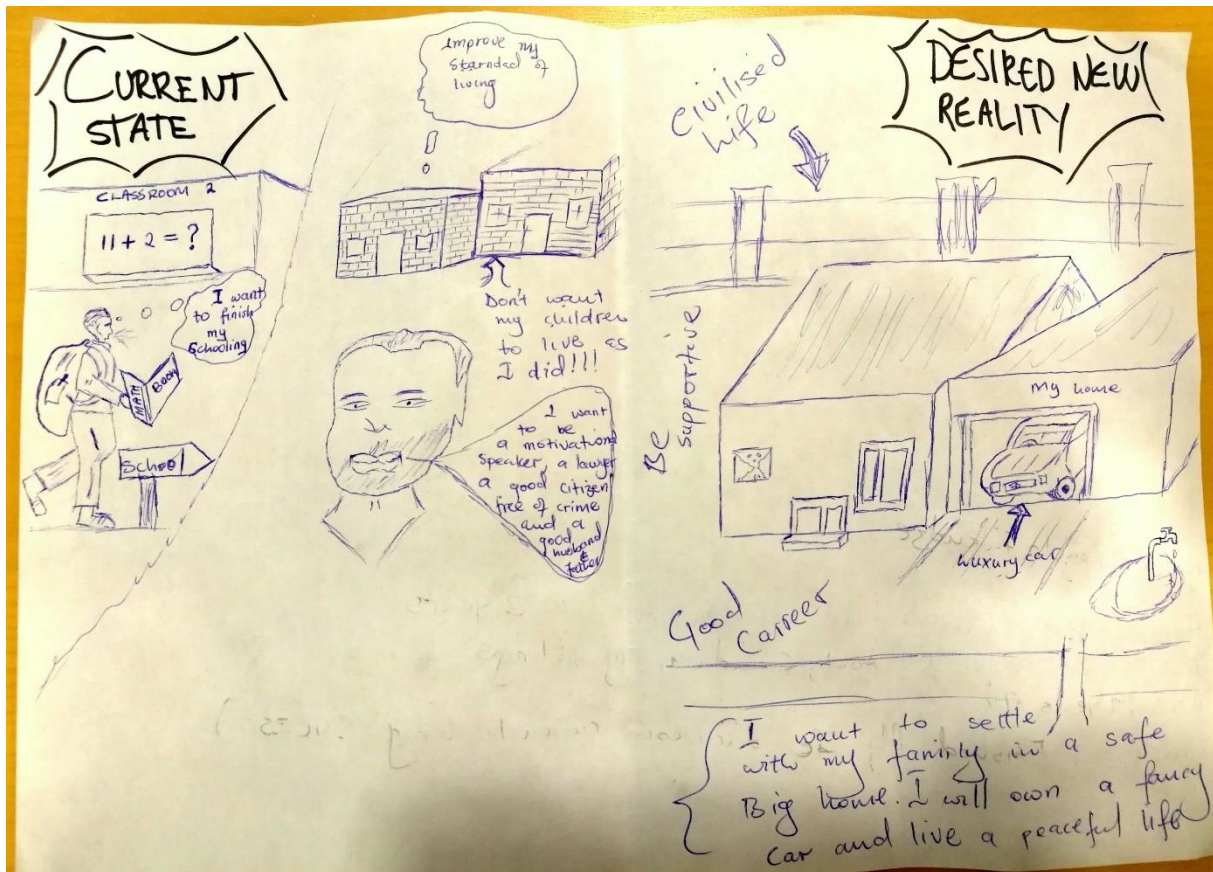 CURRENT
STATE
CLASSROOM 2
11 + 2 = ?
I want
to finish
my
Schooling
MATH
BOOK
School
Improve my
Starnded of
living
Don't want
my children
to live as
I did!!!
I want
to be
a motivational
speaker, a lawyer
a good citizen
free of crime
and a
good
husband &
father
DESIRED NEW
REALITY
Civilised
Life
Be
supportive
My home
Luxury car
Good
Carreer
I want to settle
with my family in a safe
Big home. I will own a fancy
car and live a peaceful life